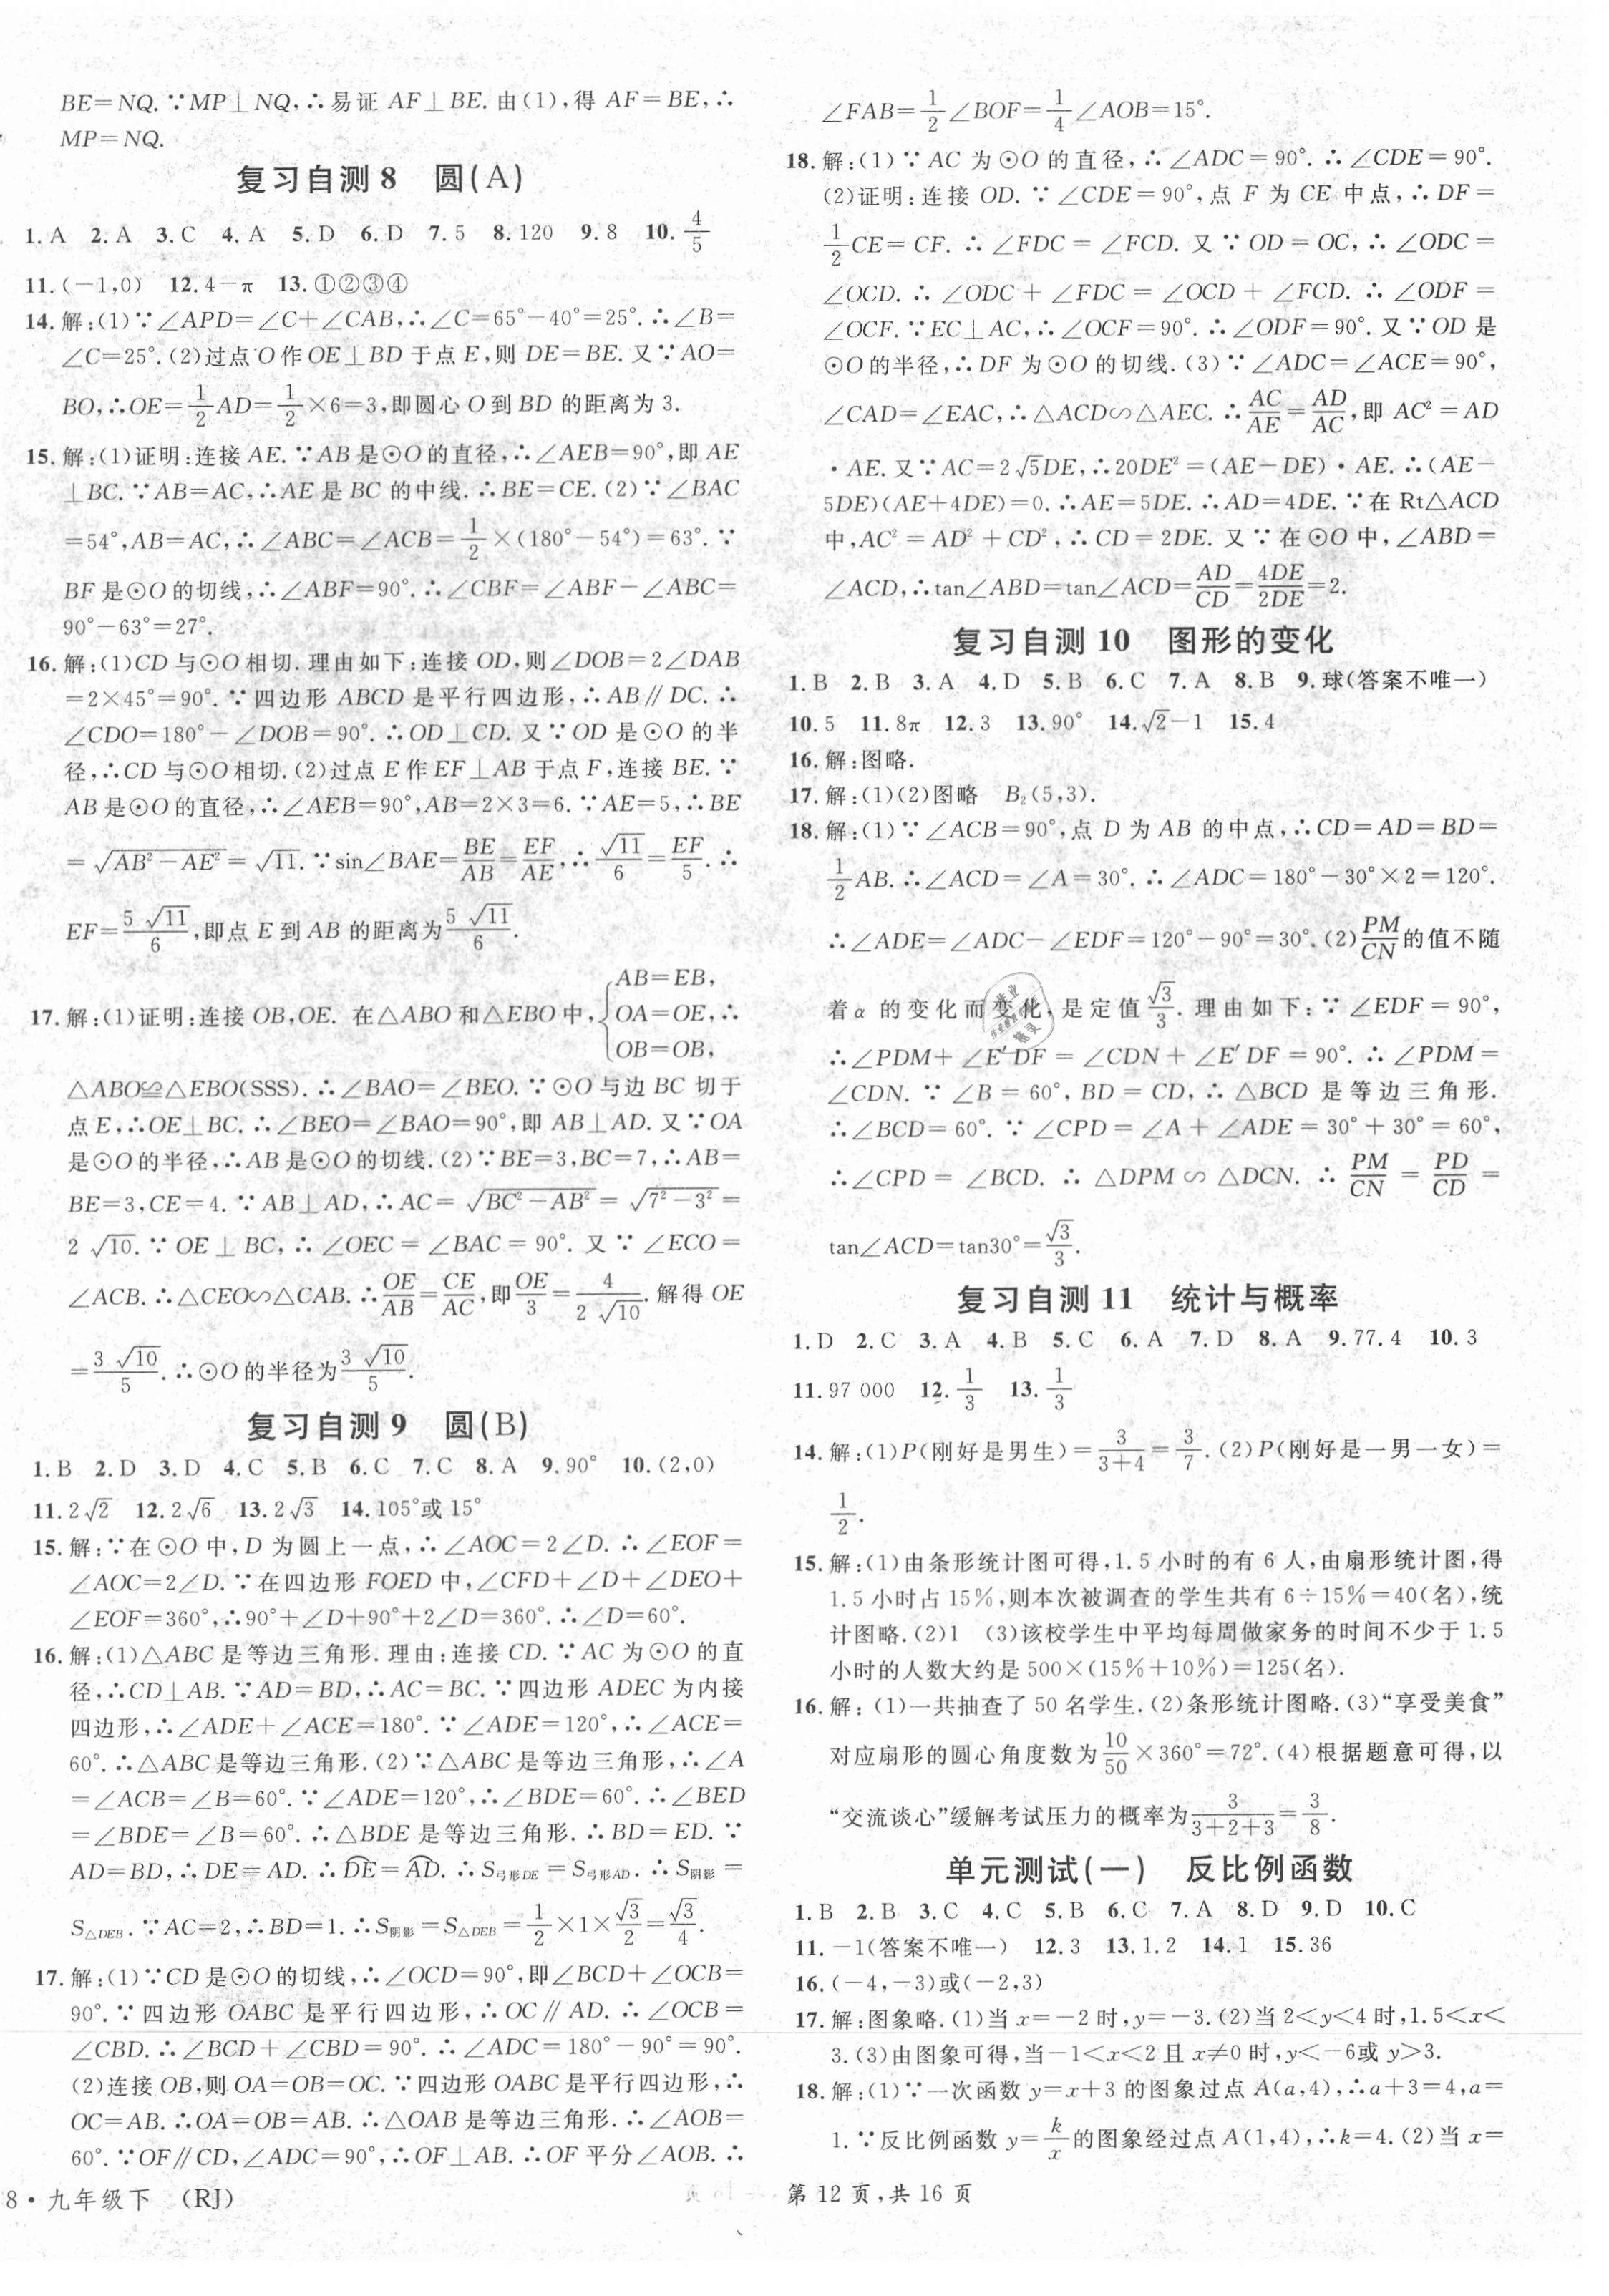 BE=NQ.∵MP⊥NQ,∴易证 AF⊥BE.由(1),得 AF=BE,∴
MP=NQ.
复习自测 8　圆(A)
1.A 2.A 3.C 4.A 5.D 6.D 7.5 8.120 9.8 10.4/5
11.(-1,0) 12.4-π 13.①②③④
14.解:(1)∵∠APD=∠C+∠CAB,∴∠C=65°-40°=25°.∴∠B=
∠C=25°.(2)过点 O 作 OE⊥BD 于点 E,则 DE=BE.又∵AO=
BO,∴OE=1/2AD=1/2×6=3,即圆心 O 到 BD 的距离为 3.
15.解:(1)证明:连接 AE.∵AB 是⊙O 的直径,∴∠AEB=90°,即 AE
⊥BC.∵AB=AC,∴AE 是 BC 的中线.∴BE=CE.(2)∵∠BAC
=54°,AB=AC,∴∠ABC=∠ACB=1/2×(180°-54°)=63°.∵
BF 是⊙O 的切线,∴∠ABF=90°.∴∠CBF=∠ABF-∠ABC=
90°-63°=27°.
16.解:(1)CD 与⊙O 相切.理由如下:连接 OD,则∠DOB=2∠DAB
=2×45°=90°.∵四边形 ABCD 是平行四边形,∴AB∥DC.∴
∠CDO=180°-∠DOB=90°.∴OD⊥CD.又∵OD 是⊙O 的半
径,∴CD 与⊙O 相切.(2)过点 E 作 EF⊥AB 于点 F,连接 BE.∵
AB 是⊙O 的直径,∴∠AEB=90°,AB=2×3=6.∵AE=5,∴BE
=√(AB²-AE²)=√11.∵sin∠BAE=BE/AB=EF/AE,∴√11/6=EF/5.∴
EF=5√11/6,即点 E 到 AB 的距离为5√11/6.
17.解:(1)证明:连接 OB,OE.在△ABO 和△EBO 中,{AB=EB,
OA=OE,∴
OB=OB,
△ABO≌△EBO(SSS).∴∠BAO=∠BEO.∵⊙O 与边 BC 切于
点 E,∴OE⊥BC.∴∠BEO=∠BAO=90°,即 AB⊥AD.又∵OA
是⊙O 的半径,∴AB 是⊙O 的切线.(2)∵BE=3,BC=7,∴AB=
BE=3,CE=4.∵AB⊥AD,∴AC=√(BC²-AB²)=√(7²-3²)=
2√10.∵OE⊥BC,∴∠OEC=∠BAC=90°.又∵∠ECO=
∠ACB.∴△CEO∽△CAB.∴OE/AB=CE/AC,即OE/3=4/2√10.解得 OE
=3√10/5.∴⊙O 的半径为3√10/5.
复习自测 9　圆(B)
1.B 2.D 3.D 4.C 5.B 6.C 7.C 8.A 9.90° 10.(2,0)
11.2√2 12.2√6 13.2√3 14.105°或 15°
15.解:∵在⊙O 中,D 为圆上一点,∴∠AOC=2∠D.∴∠EOF=
∠AOC=2∠D.∵在四边形 FOED 中,∠CFD+∠D+∠DEO+
∠EOF=360°,∴90°+∠D+90°+2∠D=360°.∴∠D=60°.
16.解:(1)△ABC 是等边三角形.理由:连接 CD.∵AC 为⊙O 的直
径,∴CD⊥AB.∵AD=BD,∴AC=BC.∵四边形 ADEC 为内接
四边形,∴∠ADE+∠ACE=180°.∵∠ADE=120°,∴∠ACE=
60°.∴△ABC 是等边三角形.(2)∵△ABC 是等边三角形,∴∠A
=∠ACB=∠B=60°.∵∠ADE=120°,∴∠BDE=60°.∴∠BED
=∠BDE=∠B=60°.∴△BDE 是等边三角形.∴BD=ED.∵
AD=BD,∴DE=AD.∴D͡E=A͡D.∴S弓形DE=S弓形AD.∴S阴影=
S△DEB.∵AC=2,∴BD=1.∴S阴影=S△DEB=1/2×1×√3/2=√3/4.
17.解:(1)∵CD 是⊙O 的切线,∴∠OCD=90°,即∠BCD+∠OCB=
90°.∵四边形 OABC 是平行四边形,∴OC∥AD.∴∠OCB=
∠CBD.∴∠BCD+∠CBD=90°.∴∠ADC=180°-90°=90°.
(2)连接 OB,则 OA=OB=OC.∵四边形 OABC 是平行四边形,∴
OC=AB.∴OA=OB=AB.∴△OAB 是等边三角形.∴∠AOB=
60°.∵OF∥CD,∠ADC=90°,∴OF⊥AB.∴OF 平分∠AOB.∴
8·九年级下 (RJ)
∠FAB=1/2∠BOF=1/4∠AOB=15°.
18.解:(1)∵AC 为⊙O 的直径,∴∠ADC=90°.∴∠CDE=90°.
(2)证明:连接 OD.∵∠CDE=90°,点 F 为 CE 中点,∴DF=
1/2CE=CF.∴∠FDC=∠FCD.又∵OD=OC,∴∠ODC=
∠OCD.∴∠ODC+∠FDC=∠OCD+∠FCD.∴∠ODF=
∠OCF.∵EC⊥AC,∴∠OCF=90°.∴∠ODF=90°.又∵OD 是
⊙O 的半径,∴DF 为⊙O 的切线.(3)∵∠ADC=∠ACE=90°,
∠CAD=∠EAC,∴△ACD∽△AEC.∴AC/AE=AD/AC,即 AC²=AD
·AE.又∵AC=2√5DE,∴20DE²=(AE-DE)·AE.∴(AE-
5DE)(AE+4DE)=0.∴AE=5DE.∴AD=4DE.∵在 Rt△ACD
中,AC²=AD²+CD²,∴CD=2DE.又∵在⊙O 中,∠ABD=
∠ACD,∴tan∠ABD=tan∠ACD=AD/CD=4DE/2DE=2.
复习自测 10　图形的变化
1.B 2.B 3.A 4.D 5.B 6.C 7.A 8.B 9.球(答案不唯一)
10.5 11.8π 12.3 13.90° 14.√2-1 15.4
16.解:图略.
17.解:(1)(2)图略 B₂(5,3).
18.解:(1)∵∠ACB=90°,点 D 为 AB 的中点,∴CD=AD=BD=
1/2AB.∴∠ACD=∠A=30°.∴∠ADC=180°-30°×2=120°.
∴∠ADE=∠ADC-∠EDF=120°-90°=30°.(2)PM/CN的值不随
着α的变化而变化,是定值√3/3.理由如下:∵∠EDF=90°,
∴∠PDM+∠E′DF=∠CDN+∠E′DF=90°.∴∠PDM=
∠CDN.∵∠B=60°,BD=CD,∴△BCD 是等边三角形.
∴∠BCD=60°.∵∠CPD=∠A+∠ADE=30°+30°=60°,
∴∠CPD=∠BCD.∴△DPM∽△DCN.∴PM/CN=PD/CD=
tan∠ACD=tan30°=√3/3.
复习自测 11　统计与概率
1.D 2.C 3.A 4.B 5.C 6.A 7.D 8.A 9.77.4 10.3
11.97 000 12.1/3 13.1/3
14.解:(1)P(刚好是男生)=3/(3+4)=3/7.(2)P(刚好是一男一女)=
1/2.
15.解:(1)由条形统计图可得,1.5 小时的有 6 人,由扇形统计图,得
1.5 小时占 15%,则本次被调查的学生共有 6÷15%=40(名),统
计图略.(2)1 (3)该校学生中平均每周做家务的时间不少于 1.5
小时的人数大约是 500×(15%+10%)=125(名).
16.解:(1)一共抽查了 50 名学生.(2)条形统计图略.(3)“享受美食”
对应扇形的圆心角度数为10/50×360°=72°.(4)根据题意可得,以
“交流谈心”缓解考试压力的概率为3/(3+2+3)=3/8.
单元测试(一)　反比例函数
1.B 2.B 3.C 4.C 5.B 6.C 7.A 8.D 9.D 10.C
11.-1(答案不唯一) 12.3 13.1.2 14.1 15.36
16.(-4,-3)或(-2,3)
17.解:图象略.(1)当 x=-2 时,y=-3.(2)当 2<y<4 时,1.5<x<
3.(3)由图象可得,当-1<x<2 且 x≠0 时,y<-6或 y>3.
18.解:(1)∵一次函数 y=x+3 的图象过点 A(a,4),∴a+3=4,a=
1.∵反比例函数 y=k/x的图象经过点 A(1,4),∴k=4.(2)当 x=
第 12 页,共 16 页